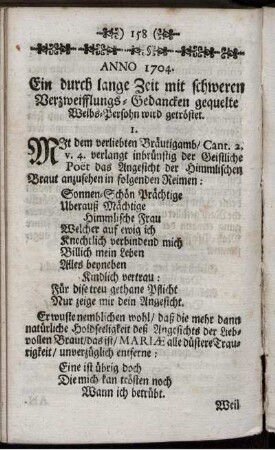 ) 158 (
ANNO 1704.
Ein durch lange Zeit mit schweren
Verzweifflungs-Gedancken gequelte
Weibs-Persohn wird getröstet.
1.
MIt dem verliebten Bräutigamb / Cant. 2.
v. 4. verlangt inbrünstig der Geistliche
Poet das Angesicht der Himmlischen
Braut anzusehen in folgenden Reimen:
Sonnen-Schön Prächtige
Uberauß Mächtige
Himmlische Frau
Welcher auf ewig ich
Knechtlich verbindend mich
Billich mein Leben
Alles beyneben
Kindlich vertrau:
Für dise treu gethane Pflicht
Nur zeige mir dein Angesicht.
Er wuste nemblichen wohl / daß die mehr dann
natürliche Holdseeligkeit deß Angesichts der Lieb-
vollen Braut / das ist / MARIÆ alle düstere Trau-
rigkeit / unverzüglich entferne:
Eine ist übrig doch
Die mich kan trösten noch
Wann ich betrübt.
Weil